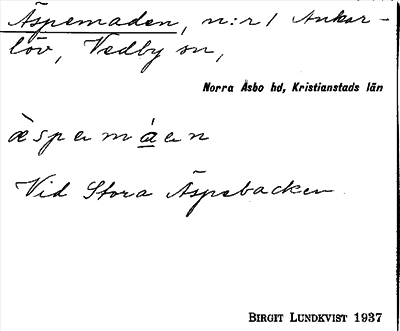 Äspemaden, n:r 1 Ankar-
löv, Vedby sn,
Norra Åsbo hd, Kristianstads län
æ̀spemáen
Vid Stora Äspebacken
BIRGIT LUNDKVIST 1937